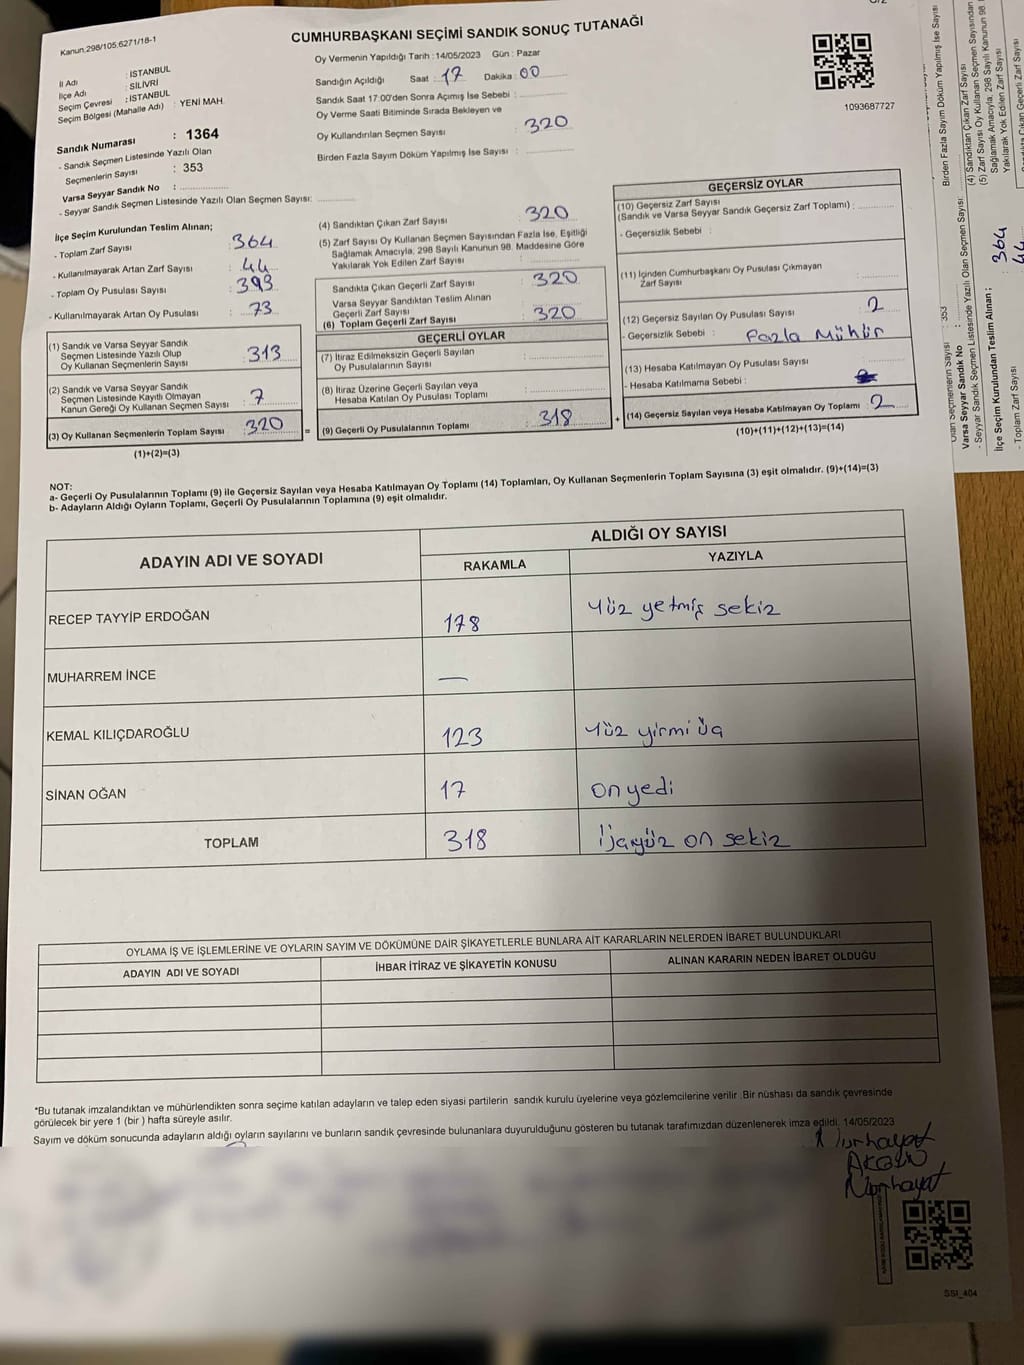 CUMHURBAŞKANI SEÇİMİ SANDIK SONUÇ TUTANAĞI
Kanun.298/105,6271/18-1
İl Adı : İSTANBUL
İlçe Adı : SİLİVRİ
Seçim Çevresi : İSTANBUL
Seçim Bölgesi (Mahalle Adı) : YENİ MAH.
Sandık Numarası : 1364
- Sandık Seçmen Listesinde Yazılı Olan
Seçmenlerin Sayısı : 353
Varsa Seyyar Sandık No :
- Seyyar Sandık Seçmen Listesinde Yazılı Olan Seçmen Sayısı:
Oy Vermenin Yapıldığı Tarih : 14/05/2023 Gün : Pazar
Sandığın Açıldığı Saat : 17 Dakika : 00
Sandık Saat 17:00'den Sonra Açımış İse Sebebi :
Oy Verme Saati Bitiminde Sırada Bekleyen ve
Oy Kullandırılan Seçmen Sayısı : 320
Birden Fazla Sayım Döküm Yapılmış İse Sayısı :
1093687727
İlçe Seçim Kurulundan Teslim Alınan;
- Toplam Zarf Sayısı : 364
- Kullanılmayarak Artan Zarf Sayısı : 44
- Toplam Oy Pusulası Sayısı : 393
- Kullanılmayarak Artan Oy Pusulası : 73
(1) Sandık ve Varsa Seyyar Sandık
Seçmen Listesinde Yazılı Olup
Oy Kullanan Seçmenlerin Sayısı : 313
(2) Sandık ve Varsa Seyyar Sandık
Seçmen Listesinde Kayıtlı Olmayan
Kanun Gereği Oy Kullanan Seçmen Sayısı : 7
(3) Oy Kullanan Seçmenlerin Toplam Sayısı : 320
(1)+(2)=(3)
(4) Sandıktan Çıkan Zarf Sayısı : 320
(5) Zarf Sayısı Oy Kullanan Seçmen Sayısından Fazla İse, Eşitliği
Sağlamak Amacıyla, 298 Sayılı Kanunun 98. Maddesine Göre
Yakılarak Yok Edilen Zarf Sayısı :
Sandıkta Çıkan Geçerli Zarf Sayısı : 320
Varsa Seyyar Sandıktan Teslim Alınan
Geçerli Zarf Sayısı
(6) Toplam Geçerli Zarf Sayısı : 320
GEÇERLİ OYLAR
(7) İtiraz Edilmeksizin Geçerli Sayılan
Oy Pusulalarının Sayısı :
(8) İtiraz Üzerine Geçerli Sayılan veya
Hesaba Katılan Oy Pusulası Toplamı :
= (9) Geçerli Oy Pusulalarının Toplamı : 318
GEÇERSİZ OYLAR
(10) Geçersiz Zarf Sayısı
(Sandık ve Varsa Seyyar Sandık Geçersiz Zarf Toplamı) :
- Geçersizlik Sebebi :
(11) İçinden Cumhurbaşkanı Oy Pusulası Çıkmayan
Zarf Sayısı :
(12) Geçersiz Sayılan Oy Pusulası Sayısı : 2
- Geçersizlik Sebebi : Fazla Mühür
(13) Hesaba Katılmayan Oy Pusulası Sayısı :
- Hesaba Katılmama Sebebi :
+ (14) Geçersiz Sayılan veya Hesaba Katılmayan Oy Toplamı : 2
(10)+(11)+(12)+(13)=(14)
NOT:
a- Geçerli Oy Pusulalarının Toplamı (9) ile Geçersiz Sayılan veya Hesaba Katılmayan Oy Toplamı (14) Toplamları, Oy Kullanan Seçmenlerin Toplam Sayısına (3) eşit olmalıdır. (9)+(14)=(3)
b- Adayların Aldığı Oyların Toplamı, Geçerli Oy Pusulalarının Toplamına (9) eşit olmalıdır.
ADAYIN ADI VE SOYADI
ALDIĞI OY SAYISI
RAKAMLA YAZIYLA
RECEP TAYYİP ERDOĞAN 178 Yüz yetmiş sekiz
MUHARREM İNCE —
KEMAL KILIÇDAROĞLU 123 Yüz yirmi üç
SİNAN OĞAN 17 On yedi
TOPLAM 318 Üçyüz on sekiz
OYLAMA İŞ VE İŞLEMLERİNE VE OYLARIN SAYIM VE DÖKÜMÜNE DAİR ŞİKAYETLERLE BUNLARA AİT KARARLARIN NELERDEN İBARET BULUNDUKLARI
ADAYIN ADI VE SOYADI İHBAR İTİRAZ VE ŞİKAYETİN KONUSU ALINAN KARARIN NEDEN İBARET OLDUĞU
*Bu tutanak imzalandıktan ve mühürlendikten sonra seçime katılan adayların ve talep eden siyasi partilerin sandık kurulu üyelerine veya gözlemcilerine verilir. Bir nüshası da sandık çevresinde
görülecek bir yere 1 (bir) hafta süreyle asılır.
Sayım ve döküm sonucunda adayların aldığı oyların sayılarını ve bunların sandık çevresinde bulunanlara duyurulduğunu gösteren bu tutanak tarafımızdan düzenlenerek imza edildi. 14/05/2023
Nurhayat
AKGÜN
Nurhayat
SSI_404
Birden Fazla Sayım Döküm Yapılmış İse Sayısı
(4) Sandıktan Çıkan Zarf Sayısı
(5) Zarf Sayısı Oy Kullanan Seçmen Sayısından
Sağlamak Amacıyla, 298 Sayılı Kanunun 98.
Yakılarak Yok Edilen Zarf Sayısı
Geçerli Zarf Sayısı
: 353
Varsa Seyyar Sandık No :
- Seyyar Sandık Seçmen Listesinde Yazılı Olan Seçmen Sayısı:
İlçe Seçim Kurulundan Teslim Alınan ;
- Toplam Zarf Sayısı : 364
44